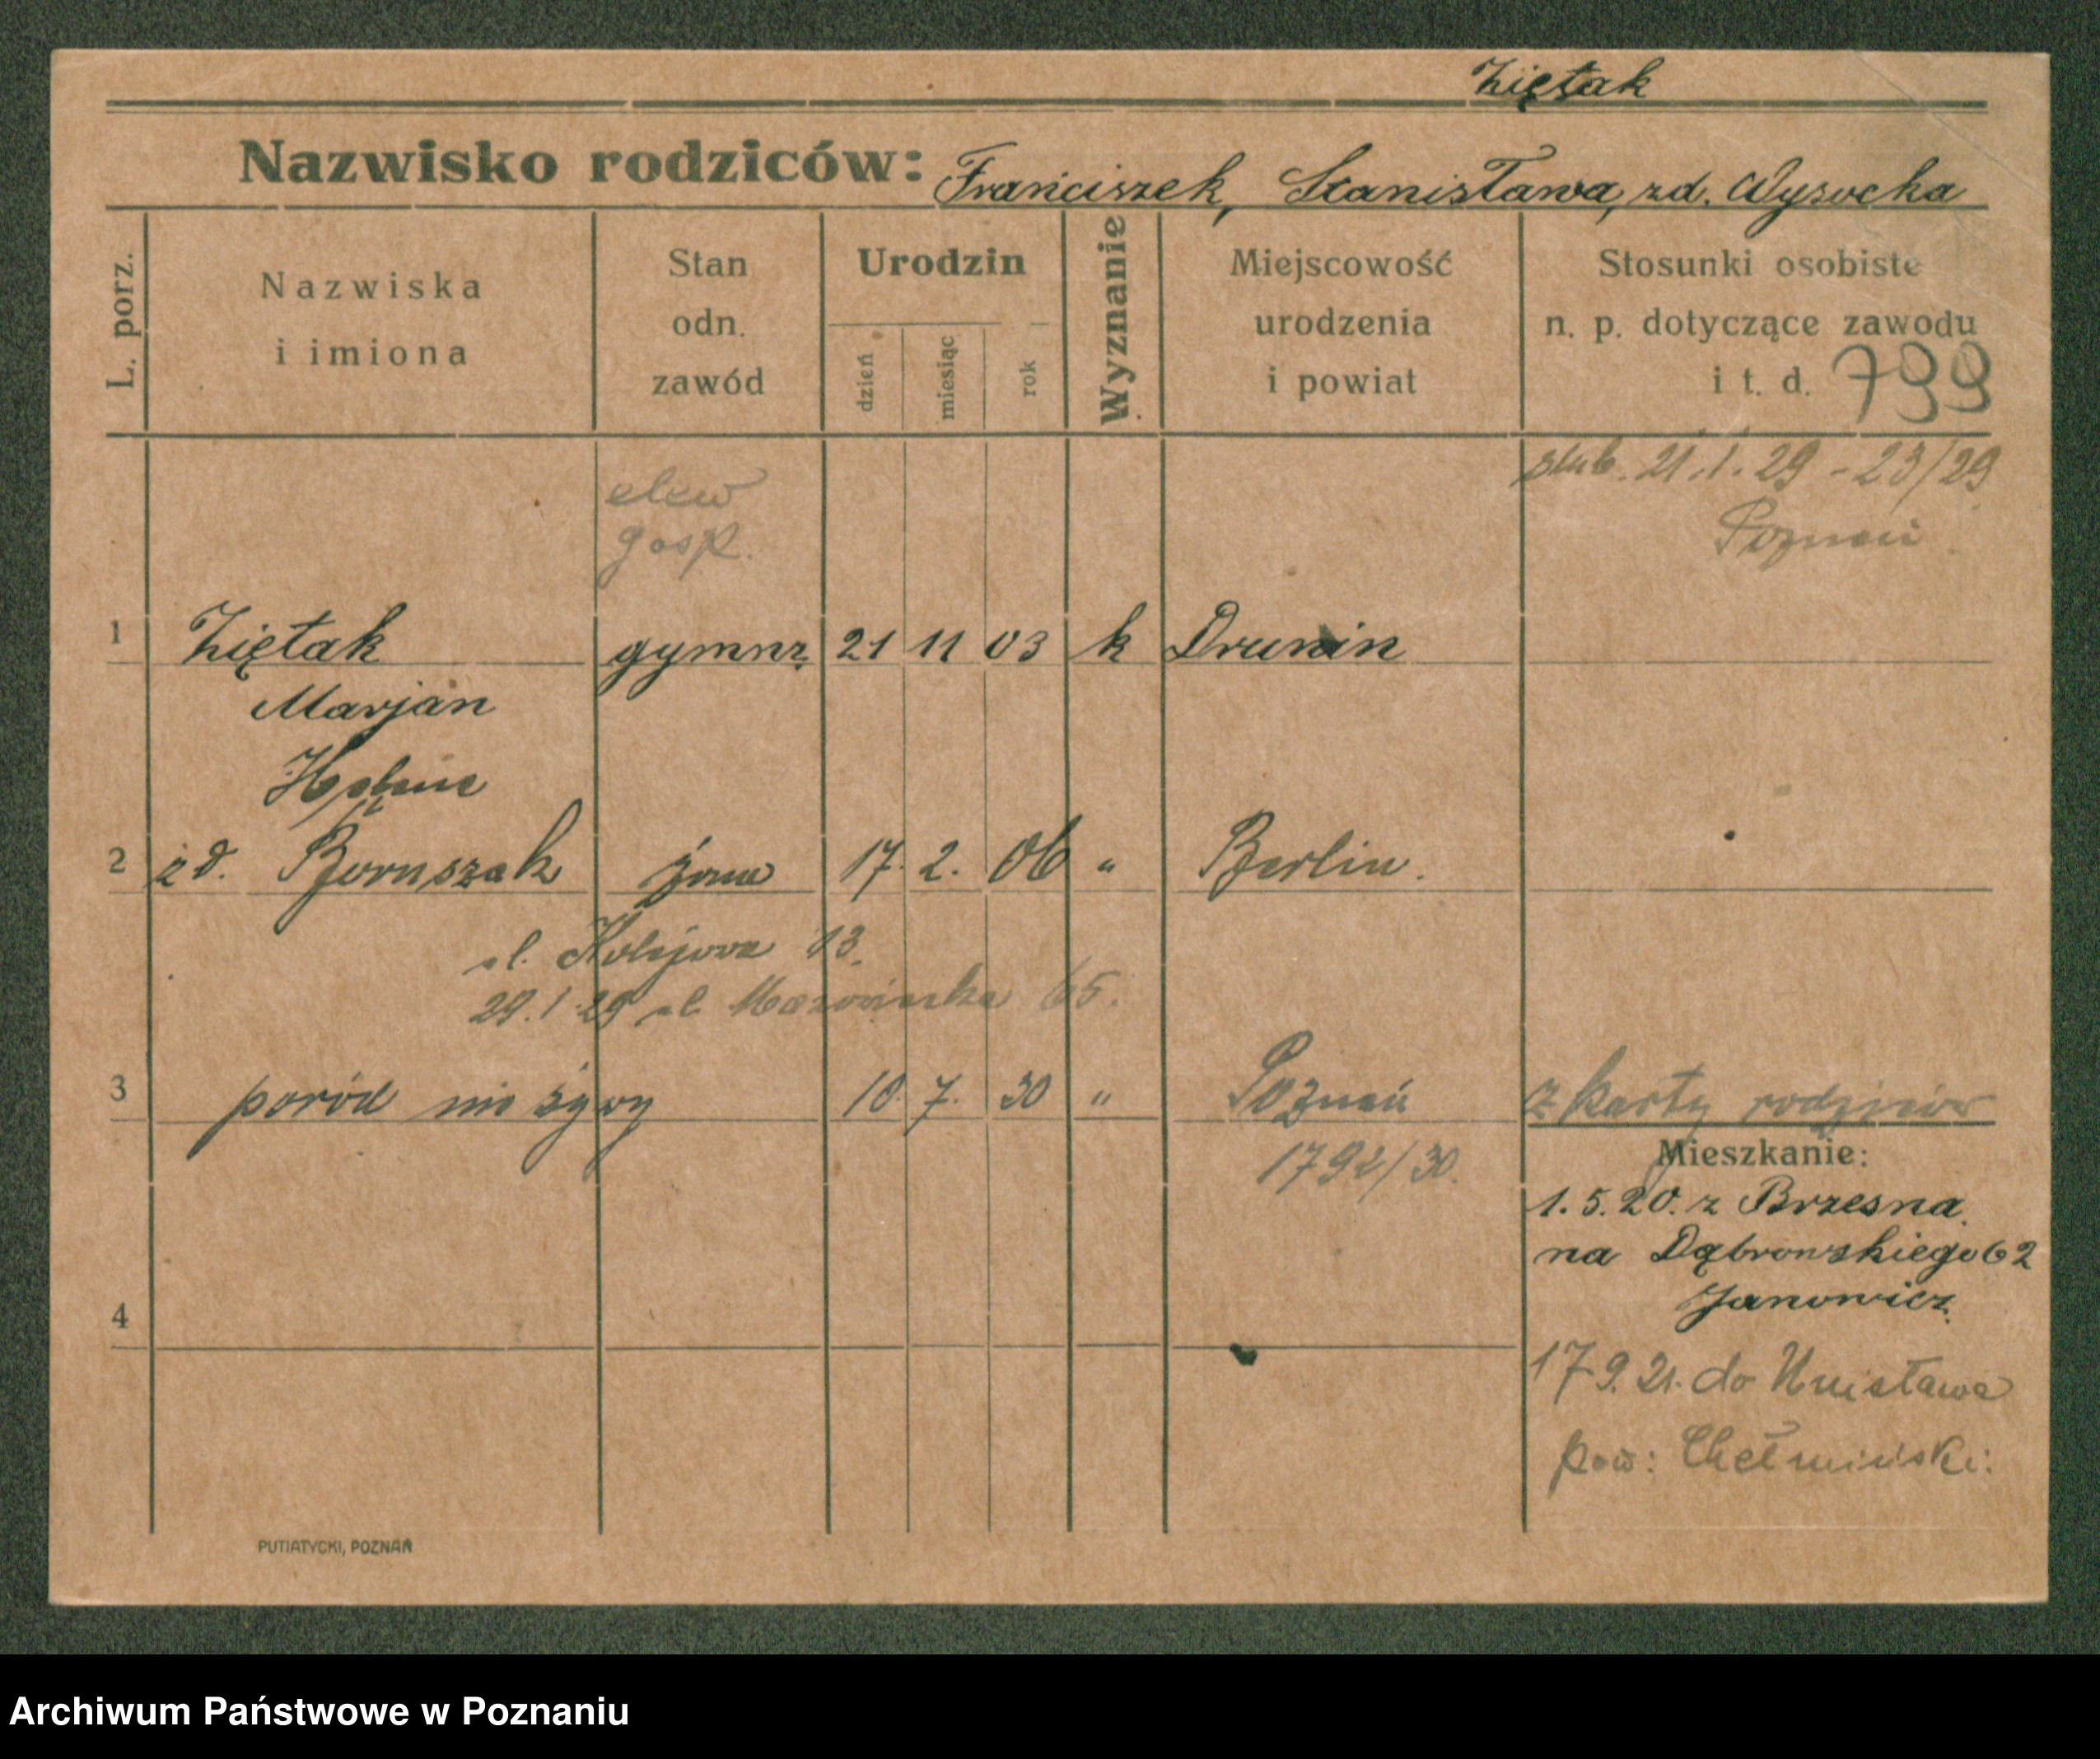 Ziętak
Nazwisko rodziców: Franciszek, Stanisława, zd. Wysocka
L. porz.
Nazwiska
i imiona
Stan
odn.
zawód
Urodzin
dzień
miesiąc
rok
Wyznanie
Miejscowość
urodzenia
i powiat
Stosunki osobiste
n. p. dotyczące zawodu
i t. d. 799
elew
gosp.
ślub. 21.1.29 - 23/29
Poznań
1 Ziętak gymnz 21 11 03 k Drunin
Marjan
2 zd. żona 17. 2. 06 " Berlin.
ul. Kolejowa 13.
29.1.29 ul. Mazowiecka 65.
3 poród nieżywy 10. 7. 30 " Poznań z karty rodziców
1792/30.
Mieszkanie:
1.5.20. z Brzesna
na Dąbrowskiego 62
Janowicz
4
17 9. 21. do Unisława
pow: Chełmiński:
PUTIATYCKI, POZNAŃ
Archiwum Państwowe w Poznaniu